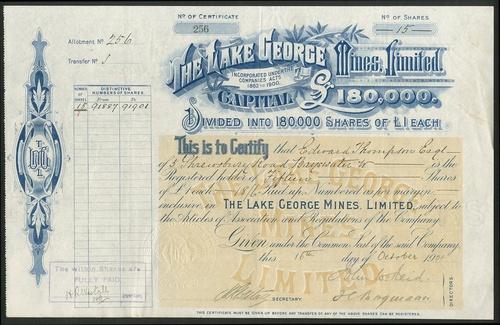 No OF CERTIFICATE
256
No OF SHARES
15
Allotment No 256
Transfer No
THE LAKE GEORGE
MINES, LIMITED.
INCORPORATED UNDER THE
COMPANIES ACTS
1862 TO 1900.
CAPITAL £180,000.
DIVIDED INTO 180,000 SHARES OF £1 EACH
No OF SHARES
DISTINCTIVE
NUMBERS OF SHARES.
From To
15 91887 91901
This is to Certify that Edward Thompson
of 3 Shrewsbury Road Bayswater W is the
Registered holder of Fifteen Shares
of £1 each paid up Numbered as per margin
inclusive, in THE LAKE GEORGE MINES, LIMITED, subject to
the Articles of Association and Regulations of the Company.
Given under the Common Seal of the said Company
this 16th day of October
LAKE GEORGE
MINES
LIMITED
The within Shares are
FULLY PAID
SECRETARY.
DIRECTORS
THIS CERTIFICATE MUST BE GIVEN UP BEFORE ANY TRANSFER OF ANY OF THE ABOVE SHARES CAN BE REGISTERED.